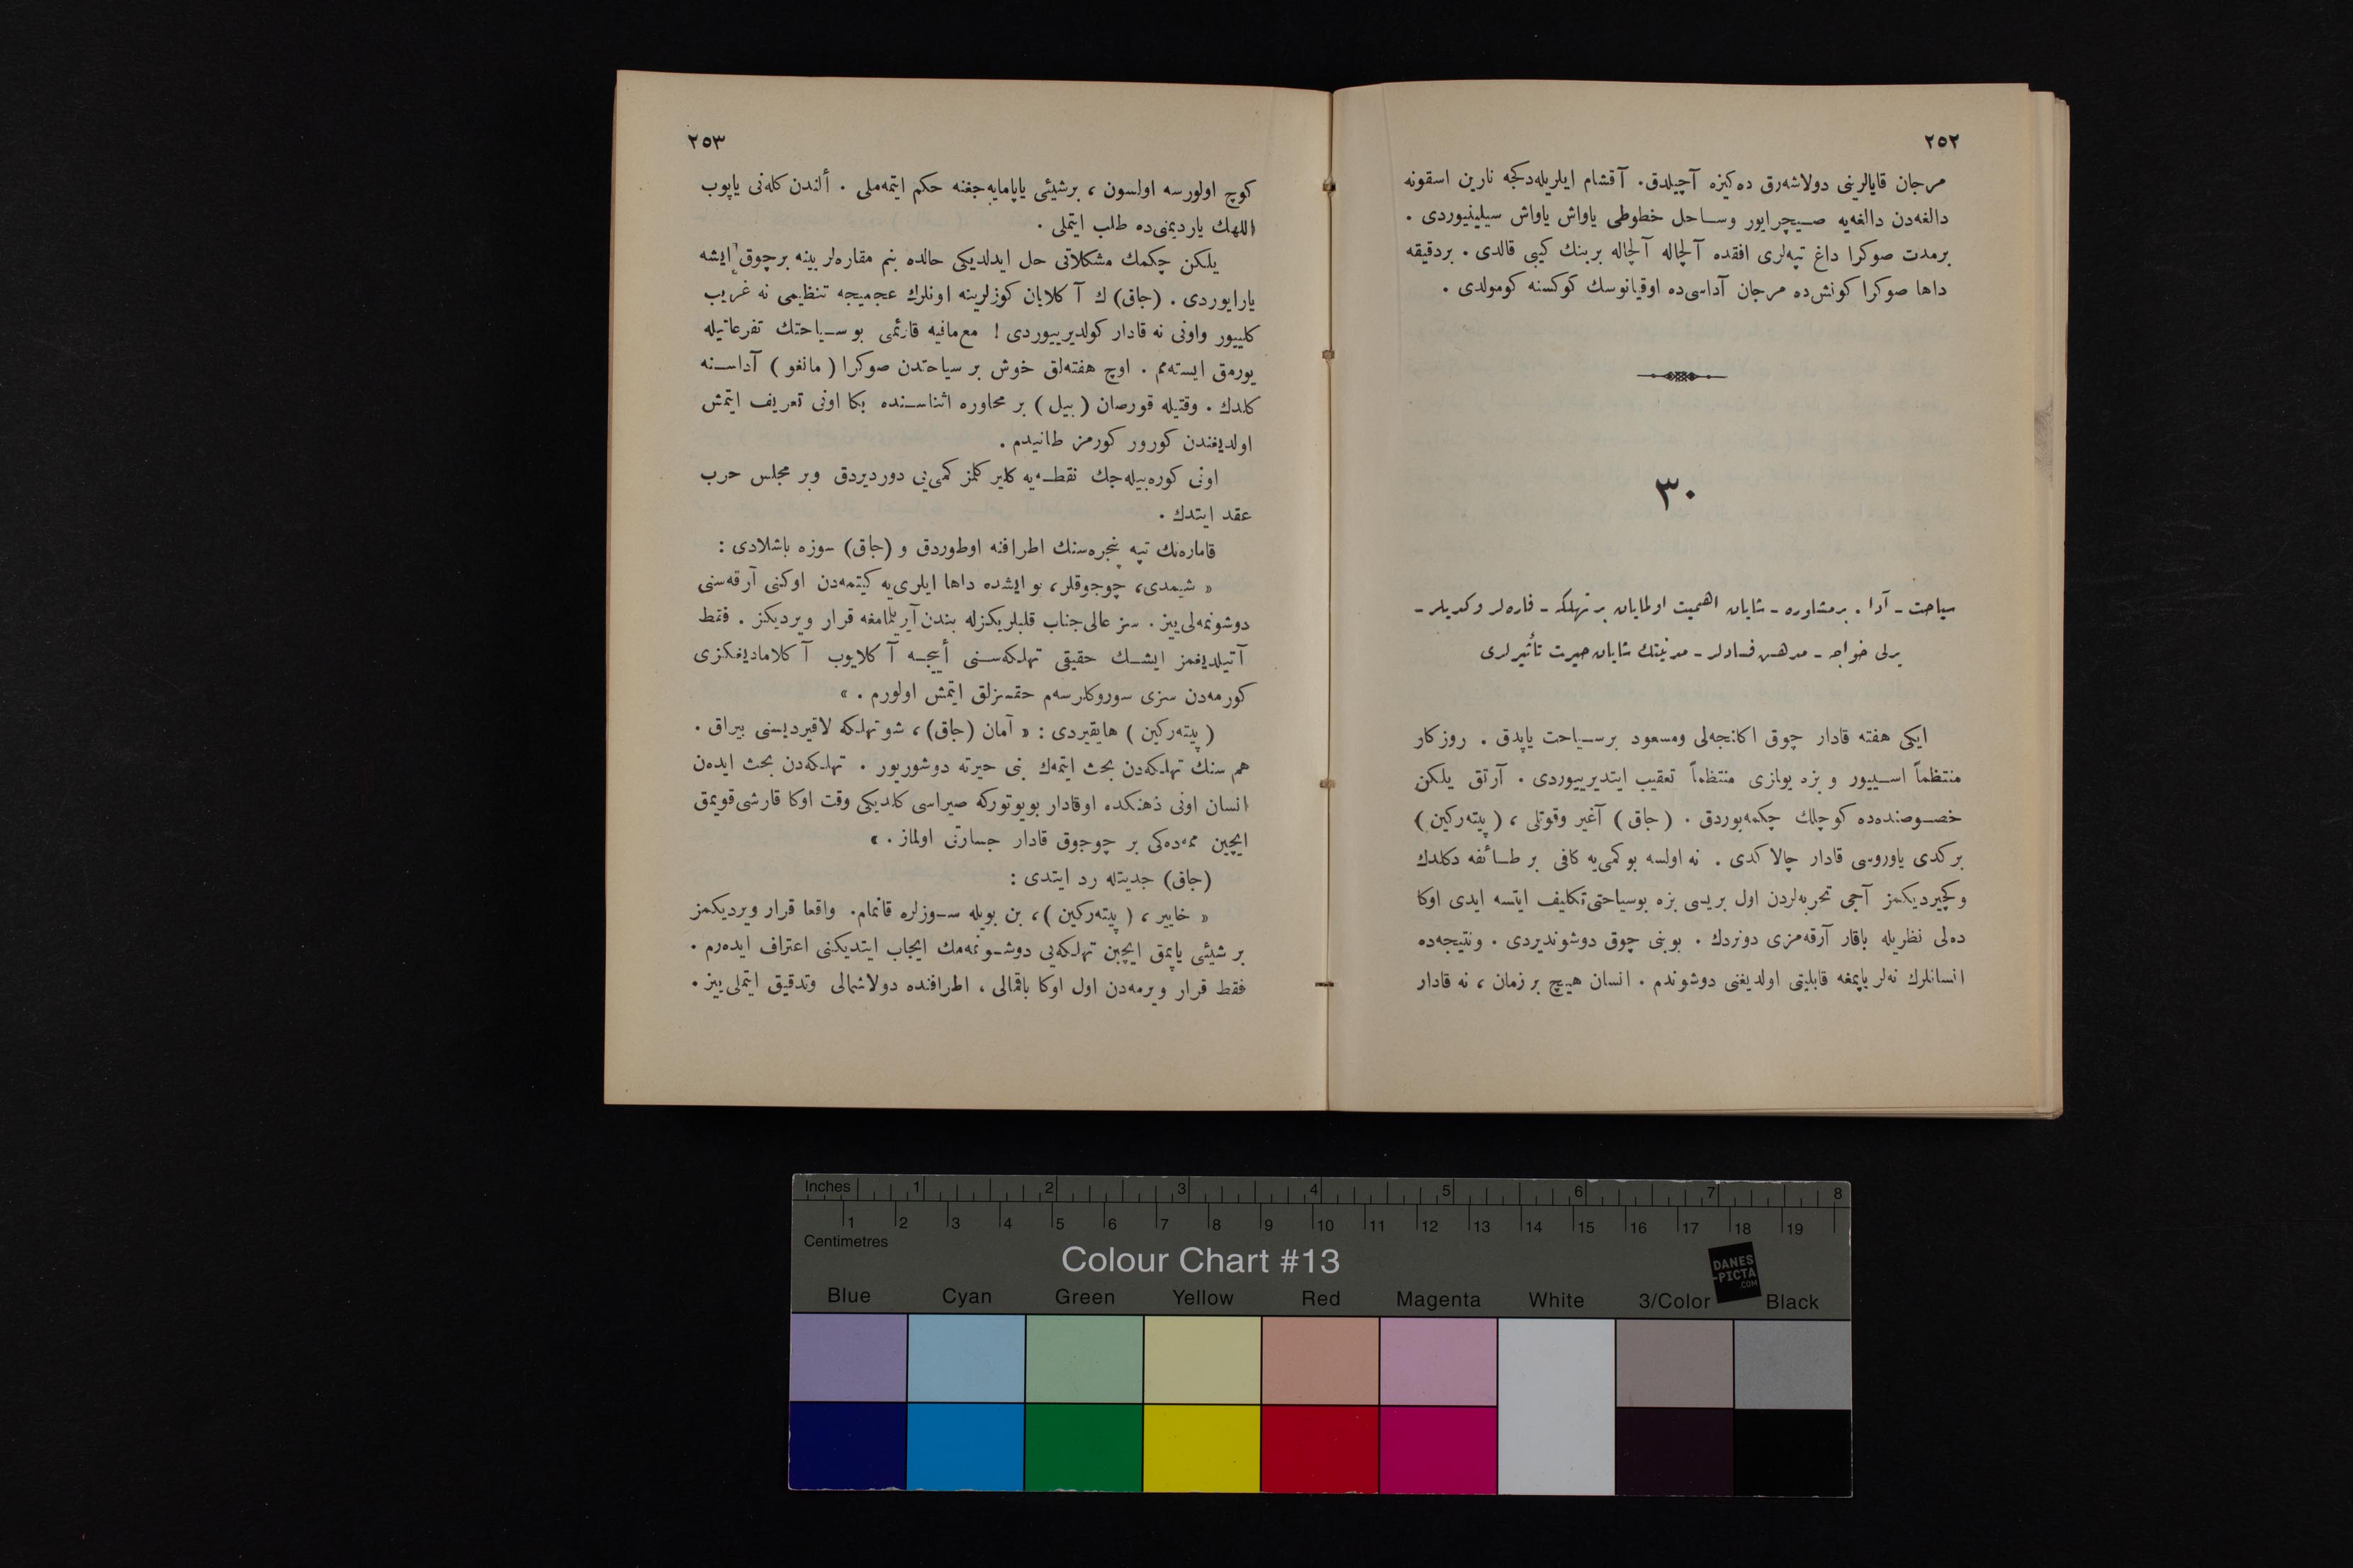 ٢٥٢
مرجان قايالرينى دولاشه‌رق ده‌كيزه آچيلدق. آقشام ايلريله‌دكجه نارين اسقونه
دالغه‌دن دالغه‌يه صيچرايور وساحل خطوطى ياواش ياواش سيلينيوردى .
برمدت صوكرا داغ تپه‌لرى افقده آلچاله آلچاله بربنك كيبى قالدى . بردقيقه
داها صوكرا كونش‌ده مرجان آداسى‌ده اوقيانوسك كوكسنه كومولدى .
٣٠
سياحت ـ آدا . برمشاوره ـ شايان اهميت اولمايان بر تهلكه ـ فاره‌لر وكديلر ـ
يرلى خواجه ـ مدهش فسادلر ـ مدنيتك شايان حيرت تأثيرلرى
ايكى هفته قادار چوق اكلنجه‌لى ومسعود برسياحت ياپدق . روزكار
منتظماً اسييور و بزه يولمزى منتظماً تعقيب ايتديرييوردى . آرتق يلكن
خصوصنده‌ده كوچلك چكمه‌يوردق . (جاق) آغير وقوتلى ، (پيته‌ركين)
بر كدى ياوروسى قادار چالاكدى . نه اولسه بوكمى‌يه كافى بر طائفه دكلدك
وكچيرديكمز آجى تجربه‌لردن اول بريسى بزه بوسياحتى تكليف ايتسه ايدى اوكا
ده‌لى نظريله باقار آرقه‌مزى دونردك . بوبنى چوق دوشونديردى . ونتيجه‌ده
انسانلرك نه‌لر ياپمغه قابليتى اولديغنى دوشوندم . انسان هيچ بر زمان ، نه قادار
٢٥٣
كوچ اولورسه اولسون ، برشيئى ياپامايه‌جغنه حكم ايتمه‌ملى . ألندن كله‌نى ياپوب
اللهك يارديمنى‌ده طلب ايتملى .
يلكن چكمك مشكلاتى حل ايدلديكى حالده بنم مقاره‌لر بينه برچوق ايشه
يارايوردى . (جاق) ك آكلايان كوزلرينه اونلرك عجميجه تنظيمى نه غريب
كلييور واونى نه قادار كولديرييوردى ! مع‌مافيه قارئمى بو سياحتك تفرعاتيله
يورمق ايسته‌مم . اوچ هفته‌لق خوش بر سياحتدن صوكرا (مانغو) آداسنه
كلدك . وقتيله قورصان (بيل) بر محاوره اثناسنده بكا اونى تعريف ايتمش
اولديغندن كورور كورمز طانيدم .
اونى كوره‌بيله‌جك نقطه‌يه كلير كلمز كمى‌يى دورديردق وبر مجلس حرب
عقد ايتدك .
قاماره‌نك تپه پنجره‌سنك اطرافنه اوطوردق و (جاق) سوزه باشلادى :
« شيمدى، چوجوقلر، بو ايشده داها ايلرى‌يه كيتمه‌دن اوكنى آرقه‌سنى
دوشونمه‌لى‌ييز . سز عالى‌جناب قلبلريكزله بندن آيريلمامغه قرار ويرديكز . فقط
آتيلديغمز ايشك حقيقى تهلكه‌سنى أييجه آكلايوب آكلاماديغكزى
كورمه‌دن سزى سوروكلرسه‌م حقسزلق ايتمش اولورم . »
(پيته‌ركين) هايقيردى : « آمان (جاق)، شو تهلكه لاقيرديسنى بيراق .
هم سنك تهلكه‌دن بحث ايتمه‌ك بنى حيرته دوشوريور . تهلكه‌دن بحث ايده‌ن
انسان اونى ذهنكده اوقادار بويوتوركه صيراسى كلديكى وقت اوكا قارشى‌قويمق
ايچين ممه‌ده‌كى بر چوجوق قادار جسارتى اولماز . »
(جاق) جديتله رد ايتدى :
« خايير ، (پيته‌ركين)، بن بويله سوزلره قانمام. واقعا قرار ويرديكمز
بر شيئى ياپمق ايچين تهلكه‌يى دوشونمه‌مك ايجاب ايتديكنى اعتراف ايده‌رم .
فقط قرار ويرمه‌دن اول اوكا باقمالى ، اطرافنده دولاشمالى وتدقيق ايتملى‌ييز .
Inches 1 2 3 4 5 6 7 8
1 2 3 4 5 6 7 8 9 10 11 12 13 14 15 16 17 18 19
Centimetres
Colour Chart #13
DANES
-PICTA
.COM
Blue Cyan Green Yellow Red Magenta White 3/Color Black